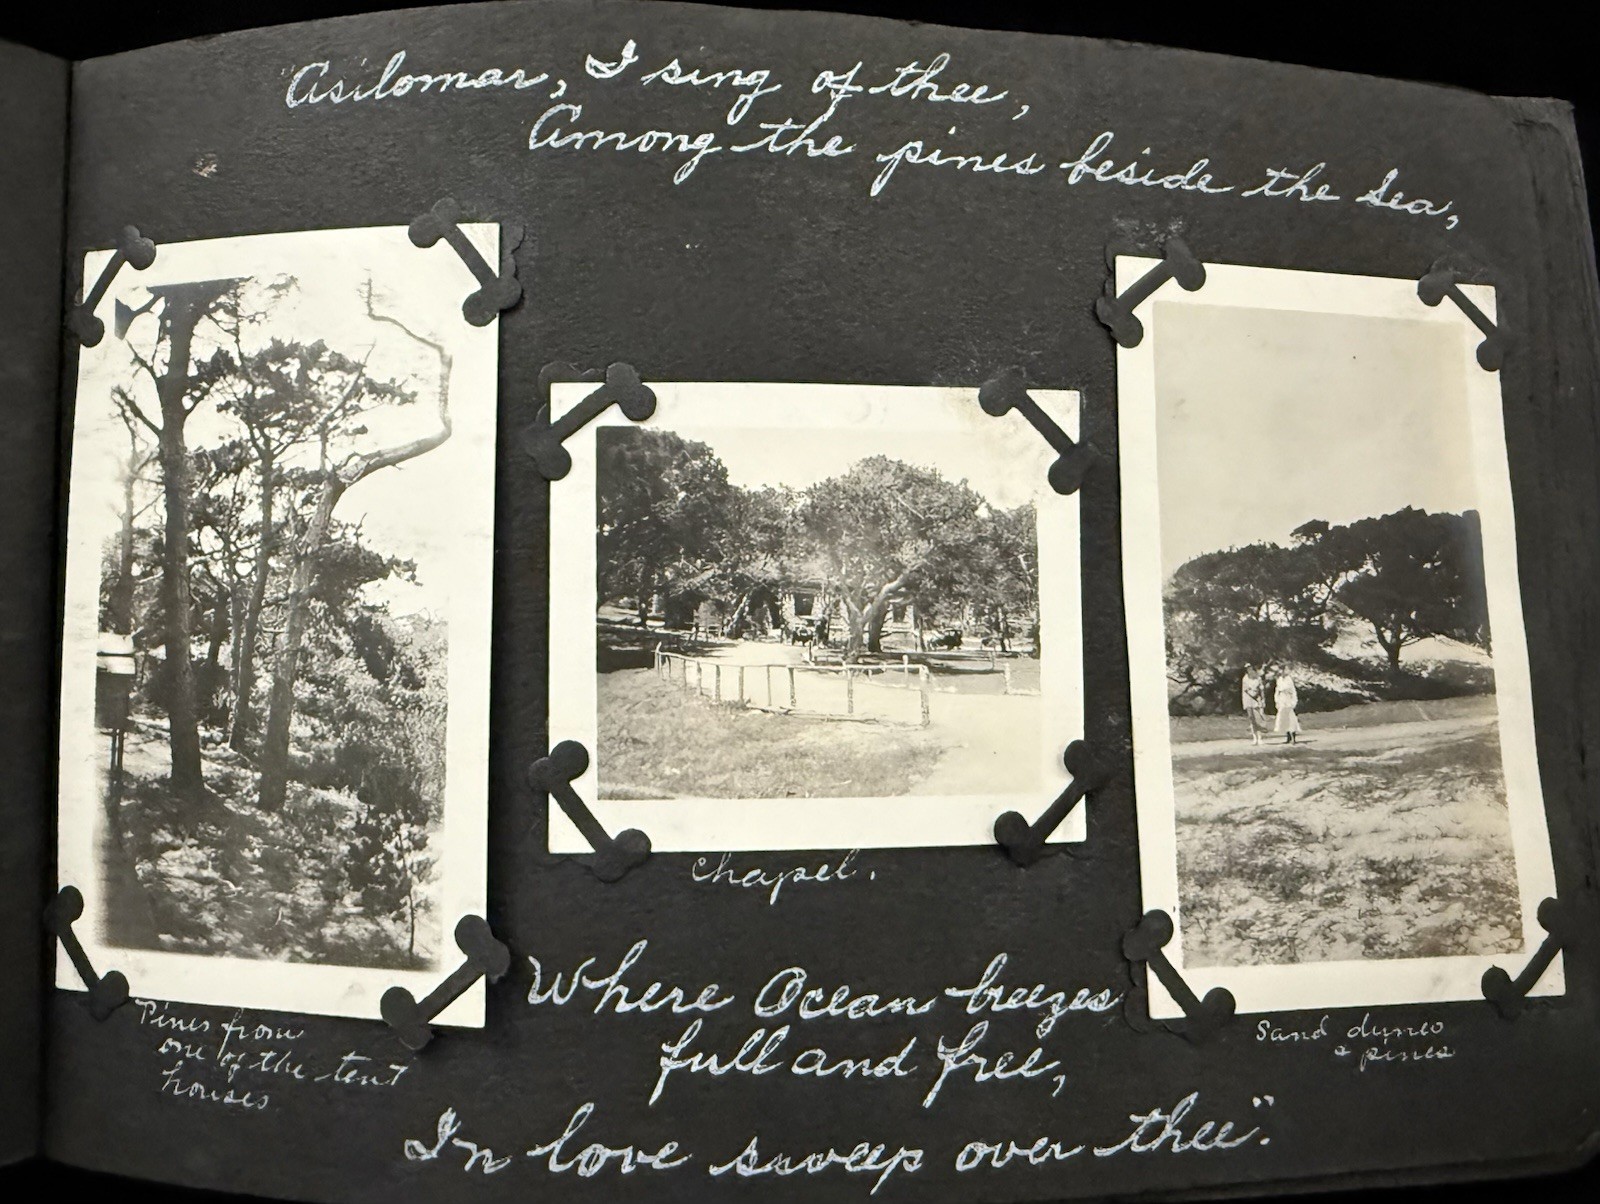 "Asilomar, I sing of thee,
Among the pines beside the Sea,
Chapel.
Pines from
one of the tent
houses.
Sand dunes
& pines
Where Ocean breezes
full and free,
In love sweep over thee".